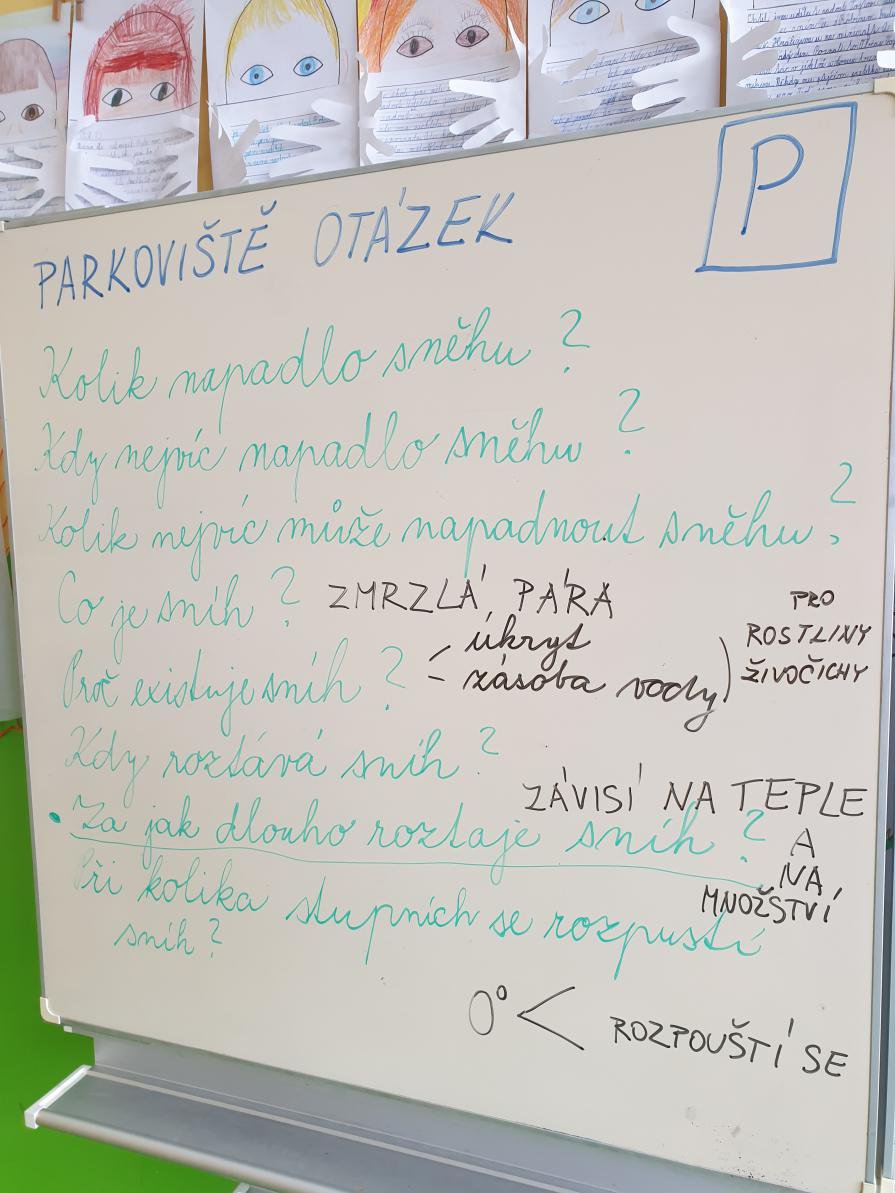 P
PARKOVIŠTĚ OTÁZEK
Kolik napadlo sněhu?
Kdy nejvíc napadlo sněhu?
Kolik nejvíc může napadnout sněhu?
Co je sníh? ZMRZLÁ PÁRA
Proč existuje sníh? úkryt
zásoba vody
PRO
ROSTLINY
ŽIVOČICHY
Kdy roztává sníh?
ZÁVISÍ NA TEPLE
A
NA
MNOŽSTVÍ
• Za jak dlouho roztaje sníh?
Při kolika stupních se rozpustí
sníh?
0° < ROZPOUŠTÍ SE